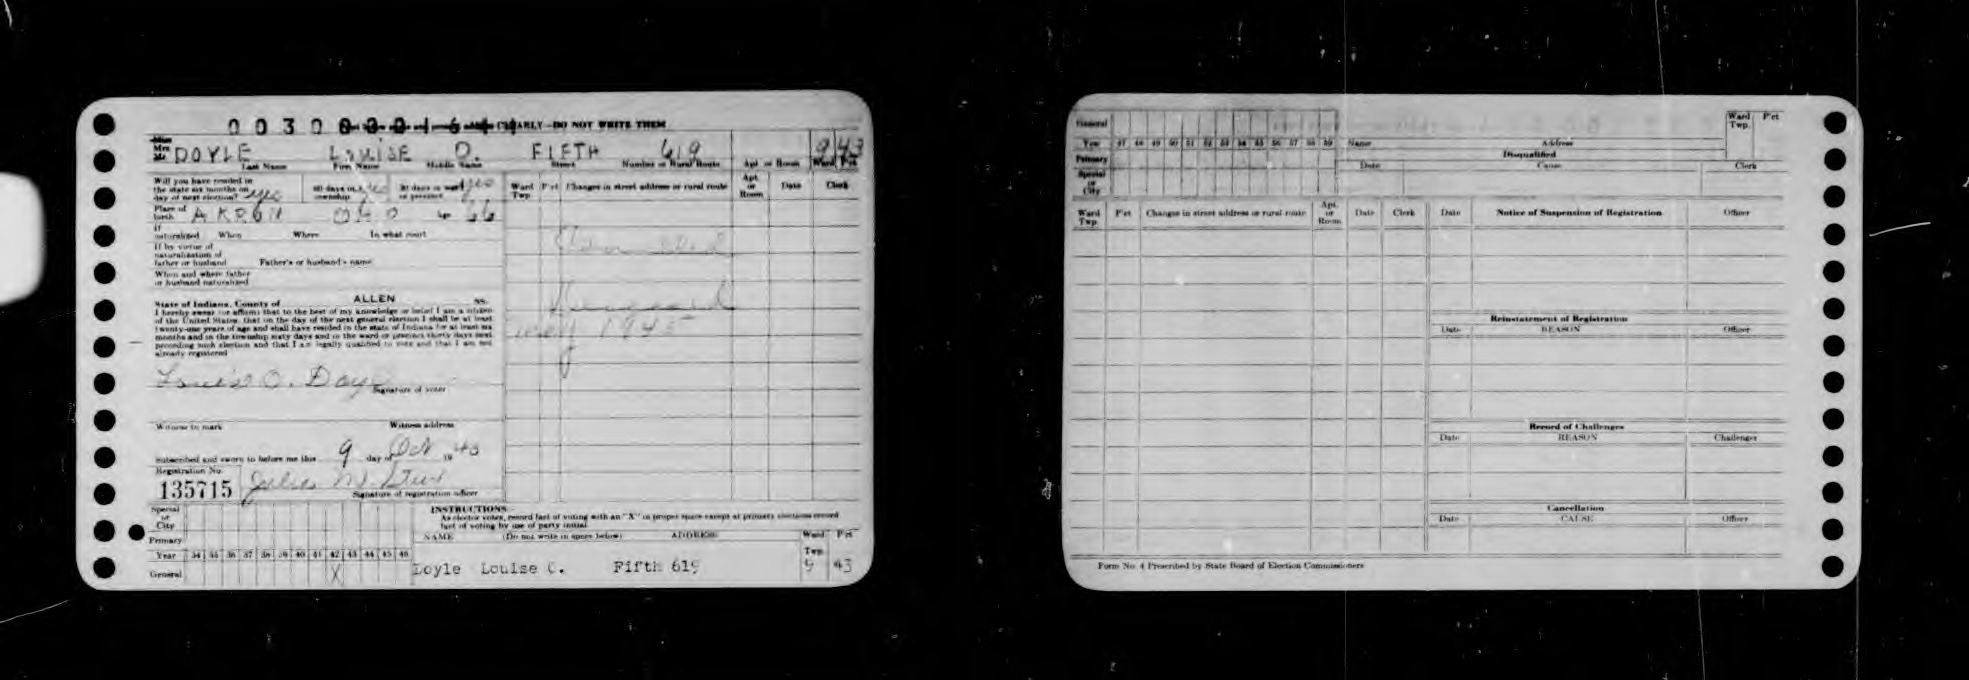 CLEARLY—DO NOT WRITE THEM
Miss
Mrs
Mr DOYLE LOUISE O. FIFTH 619 9 43
Last Name First Name Middle Name Street Number or Rural Route Apt. or Room Ward Pct
Will you have resided in
the state six months on
day of next election? yes
60 days in
township yes
30 days in ward
or precinct yes
Place of
birth AKRON
If
naturalized When Where In what court
If by virtue of
naturalization of
father or husband Father's or husband's name
When and where father
or husband naturalized
State of Indiana, County of ALLEN ss.
I hereby swear (or affirm) that to the best of my knowledge or belief I am a citizen
of the United States, that on the day of the next general election I shall be at least
twenty-one years of age and shall have resided in the state of Indiana for at least six
months and in the township sixty days and in the ward or precinct thirty days next
preceding such election and that I am legally qualified to vote and that I am not
already registered
Louise O. Doyle
Signature of voter
Witness to mark Witness address
Subscribed and sworn to before me this 9 day of Oct 19
Registration No.
135715
Signature of registration officer
Ward
Twp. P'ct Changes in street address or rural route Apt.
or
Room Date Clerk
1945
INSTRUCTIONS
As elector votes, record fact of voting with an "X" in proper space except at primary elections record
fact of voting by use of party initial
Special
or
City
Primary
Year 34 35 36 37 38 39 40 41 42 43 44 45 46
General X
NAME (Do not write in space below) ADDRESS Ward
Twp. P'ct
Doyle Louise O. Fifth 619 9 43
General
Year 47 48 49 50 51 52 53 54 55 56 57 58 59
Primary
Special
or
City
Name Address
Ward
Twp. P'ct
Disqualified
Date Cause Clerk
Ward
Twp. P'ct Changes in street address or rural route Apt.
or
Room Date Clerk
Date Notice of Suspension of Registration Officer
Reinstatement of Registration
Date REASON Officer
Record of Challenges
Date REASON Challenger
Cancellation
Date CAUSE Officer
Form No. 4 Prescribed by State Board of Election Commissioners